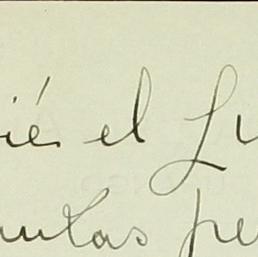 ié el Lu
untas pe